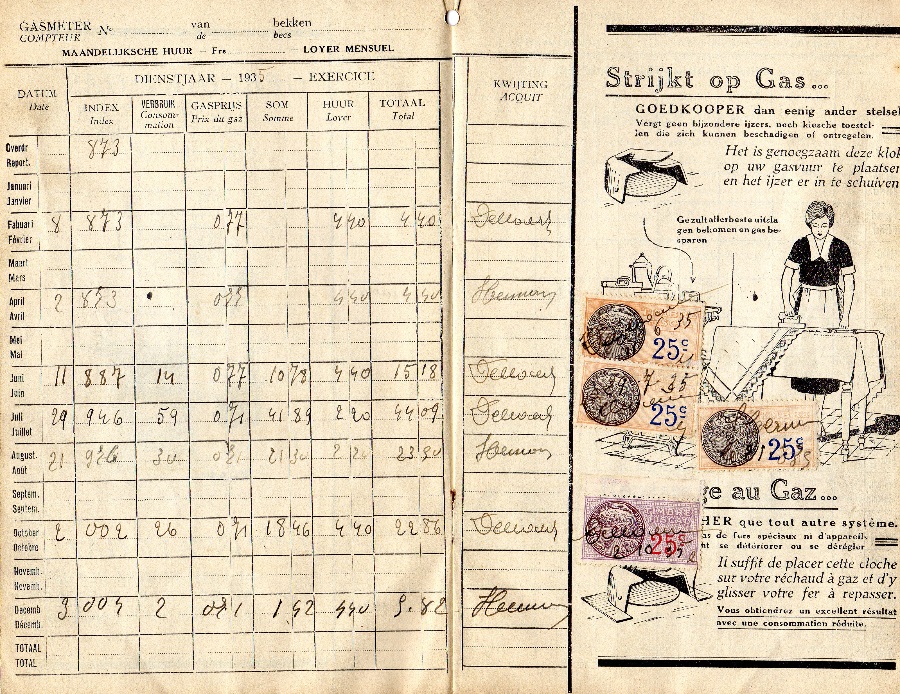 GASMETER No van bekken
COMPTEUR de becs
MAANDELIJKSCHE HUUR — Frs LOYER MENSUEL
DIENSTJAAR — 1935 — EXERCICE
DATUM INDEX VERBRUIK GASPRIJS SOM HUUR TOTAAL KWIJTING
Date Index Consommation Prix du gaz Somme Loyer Total ACQUIT
Overdr. 873
Report.
Januari
Janvier
Febuari 8 873 0 77 4 40 4 40
Février
Maart
Mars
April 2 873 4 40 4 40
Avril
Mei
Mai
Juni 11 887 14 0 77 10 78 4 40 15 18
Juin
Juli 29 946 59 0 71 41 89 2 20 44 09
Juillet
August. 21 976 30 0 71 21 30 2 20 23 50
Août
Septem.
Septem.
October 2 002 26 0 71 18 46 4 40 22 86
Octobre
Novemb.
Novemb.
Decemb 3 004 2 0 71 1 42 4 40 5.82
Décemb.
TOTAAL
TOTAL
Strijkt op Gas...
GOEDKOOPER dan eenig ander stelsel
Vergt geen bijzondere ijzers, noch kiesche toestel-
len die zich kunnen beschadigen of ontregelen.
Het is genoegzaam deze klok
op uw gasvuur te plaatsen
en het ijzer er in te schuiven
Ge zult allerbeste uitsla
gen bekomen en gas be-
sparen
25c
25c
25c
25c
ge au Gaz...
HER que tout autre système.
as de fers spéciaux ni d'appareils
nt se détériorer ou se dérégler
Il suffit de placer cette cloche
sur votre réchaud à gaz et d'y
glisser votre fer à repasser.
Vous obtiendrez un excellent résultat
avec une consommation réduite.